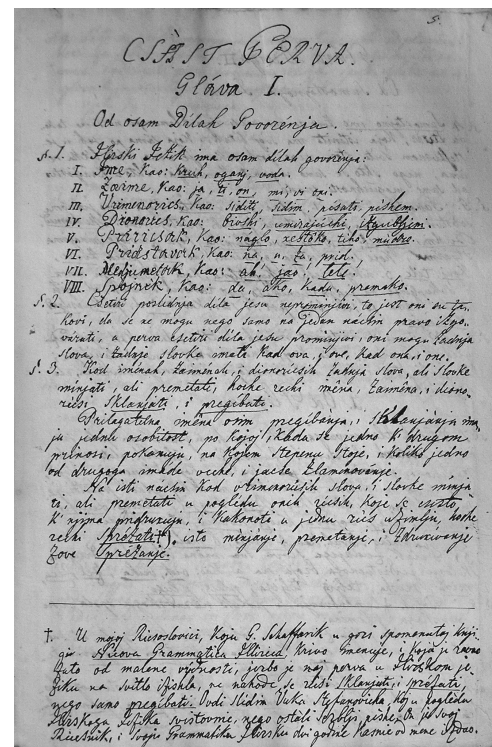 5.
CSÀST PERVA.
Gláva I.
Od osam Dílah Govorénja.
§. 1. Ilirski Jezik ima osam dílah govorénja:
I. Ime, kao: kruh, oganj, voda.
II. Zaime, kao: ja, ti, on, mi, vi oni.
III. Vrimenorics, kao: siditi, sidim, pisati, pishem.
IV. Dionorics, kao: umirajuchi, izgubljeni.
V. Pŕiricsak, kao: naglo, xestoko, tiho, mudro.
VI. Pridstavak, kao: na, u, za, prid.
VII. Medjumetak, kao: ah! jao! lele!
VIII. Spojnik, kao: da, ako, kada, premako.
§. 2. Csetiri poslidnja díla jesu neprominjiva, to jest oni su ta-
kovi, da se ne mogu nego samo na jedan nacsin pravo izgo-
varati, a perva csetiri díla jesu prominjiva, oni mogu zadnja
slova, i zadnje slovke imati kad ova, i ove, kad ona, i one.
§. 3. Kod imenah, zaimenah, i dionoricsih zadnja slova, ali slovke
minjati, ali premetati, hoche rechi ména, zaména, i diono-
ricsi sklanjati, i pregibati.
Prilagatelna ména osim pregibanja, i sklanjanja ima-
ju jednu osobitost, po kojoj, kada se jedno k' drugom
prinosi, pokazuju, na kojem stepenu stoje, i koliko jedno
od drugoga imade veche, i jacse zlamenovanje.
Na isti nacsin kod vrimenoricsih slova, i slovke minja-
ti, ali premetati u pogledu onih ricsih, koje se csesto
k' njima pridruxuju, i kakonoti u jednu rics uzimlju, hoche
rechi sprézati †), isto minjanje, premetanje, i zdruxivanje
zove sprézanje.
†. U mojoj Ricsoslovici, koju G. Schaffarik u gori spomenutoj knji-
gi: Nicova Grammatica Illirica krivo imenuje, i koja je zasvo
zato od malene vridnosti, jerbo je naj perva u Ilirskom je-
ziku na svitlo izishla, ne nahode se ricsi sklanjati, i sprézati,
nego samo pregibati. Ovdi slidim Vuka Stefanovicha, koj u pogledu
Ilirskoga Jezika svistovnie, nego ostali Serblji, pishe. On je svoj
Ricsnik, i svoju Grammatiku Ilirsku dvi godine kasnie od mene izdao.